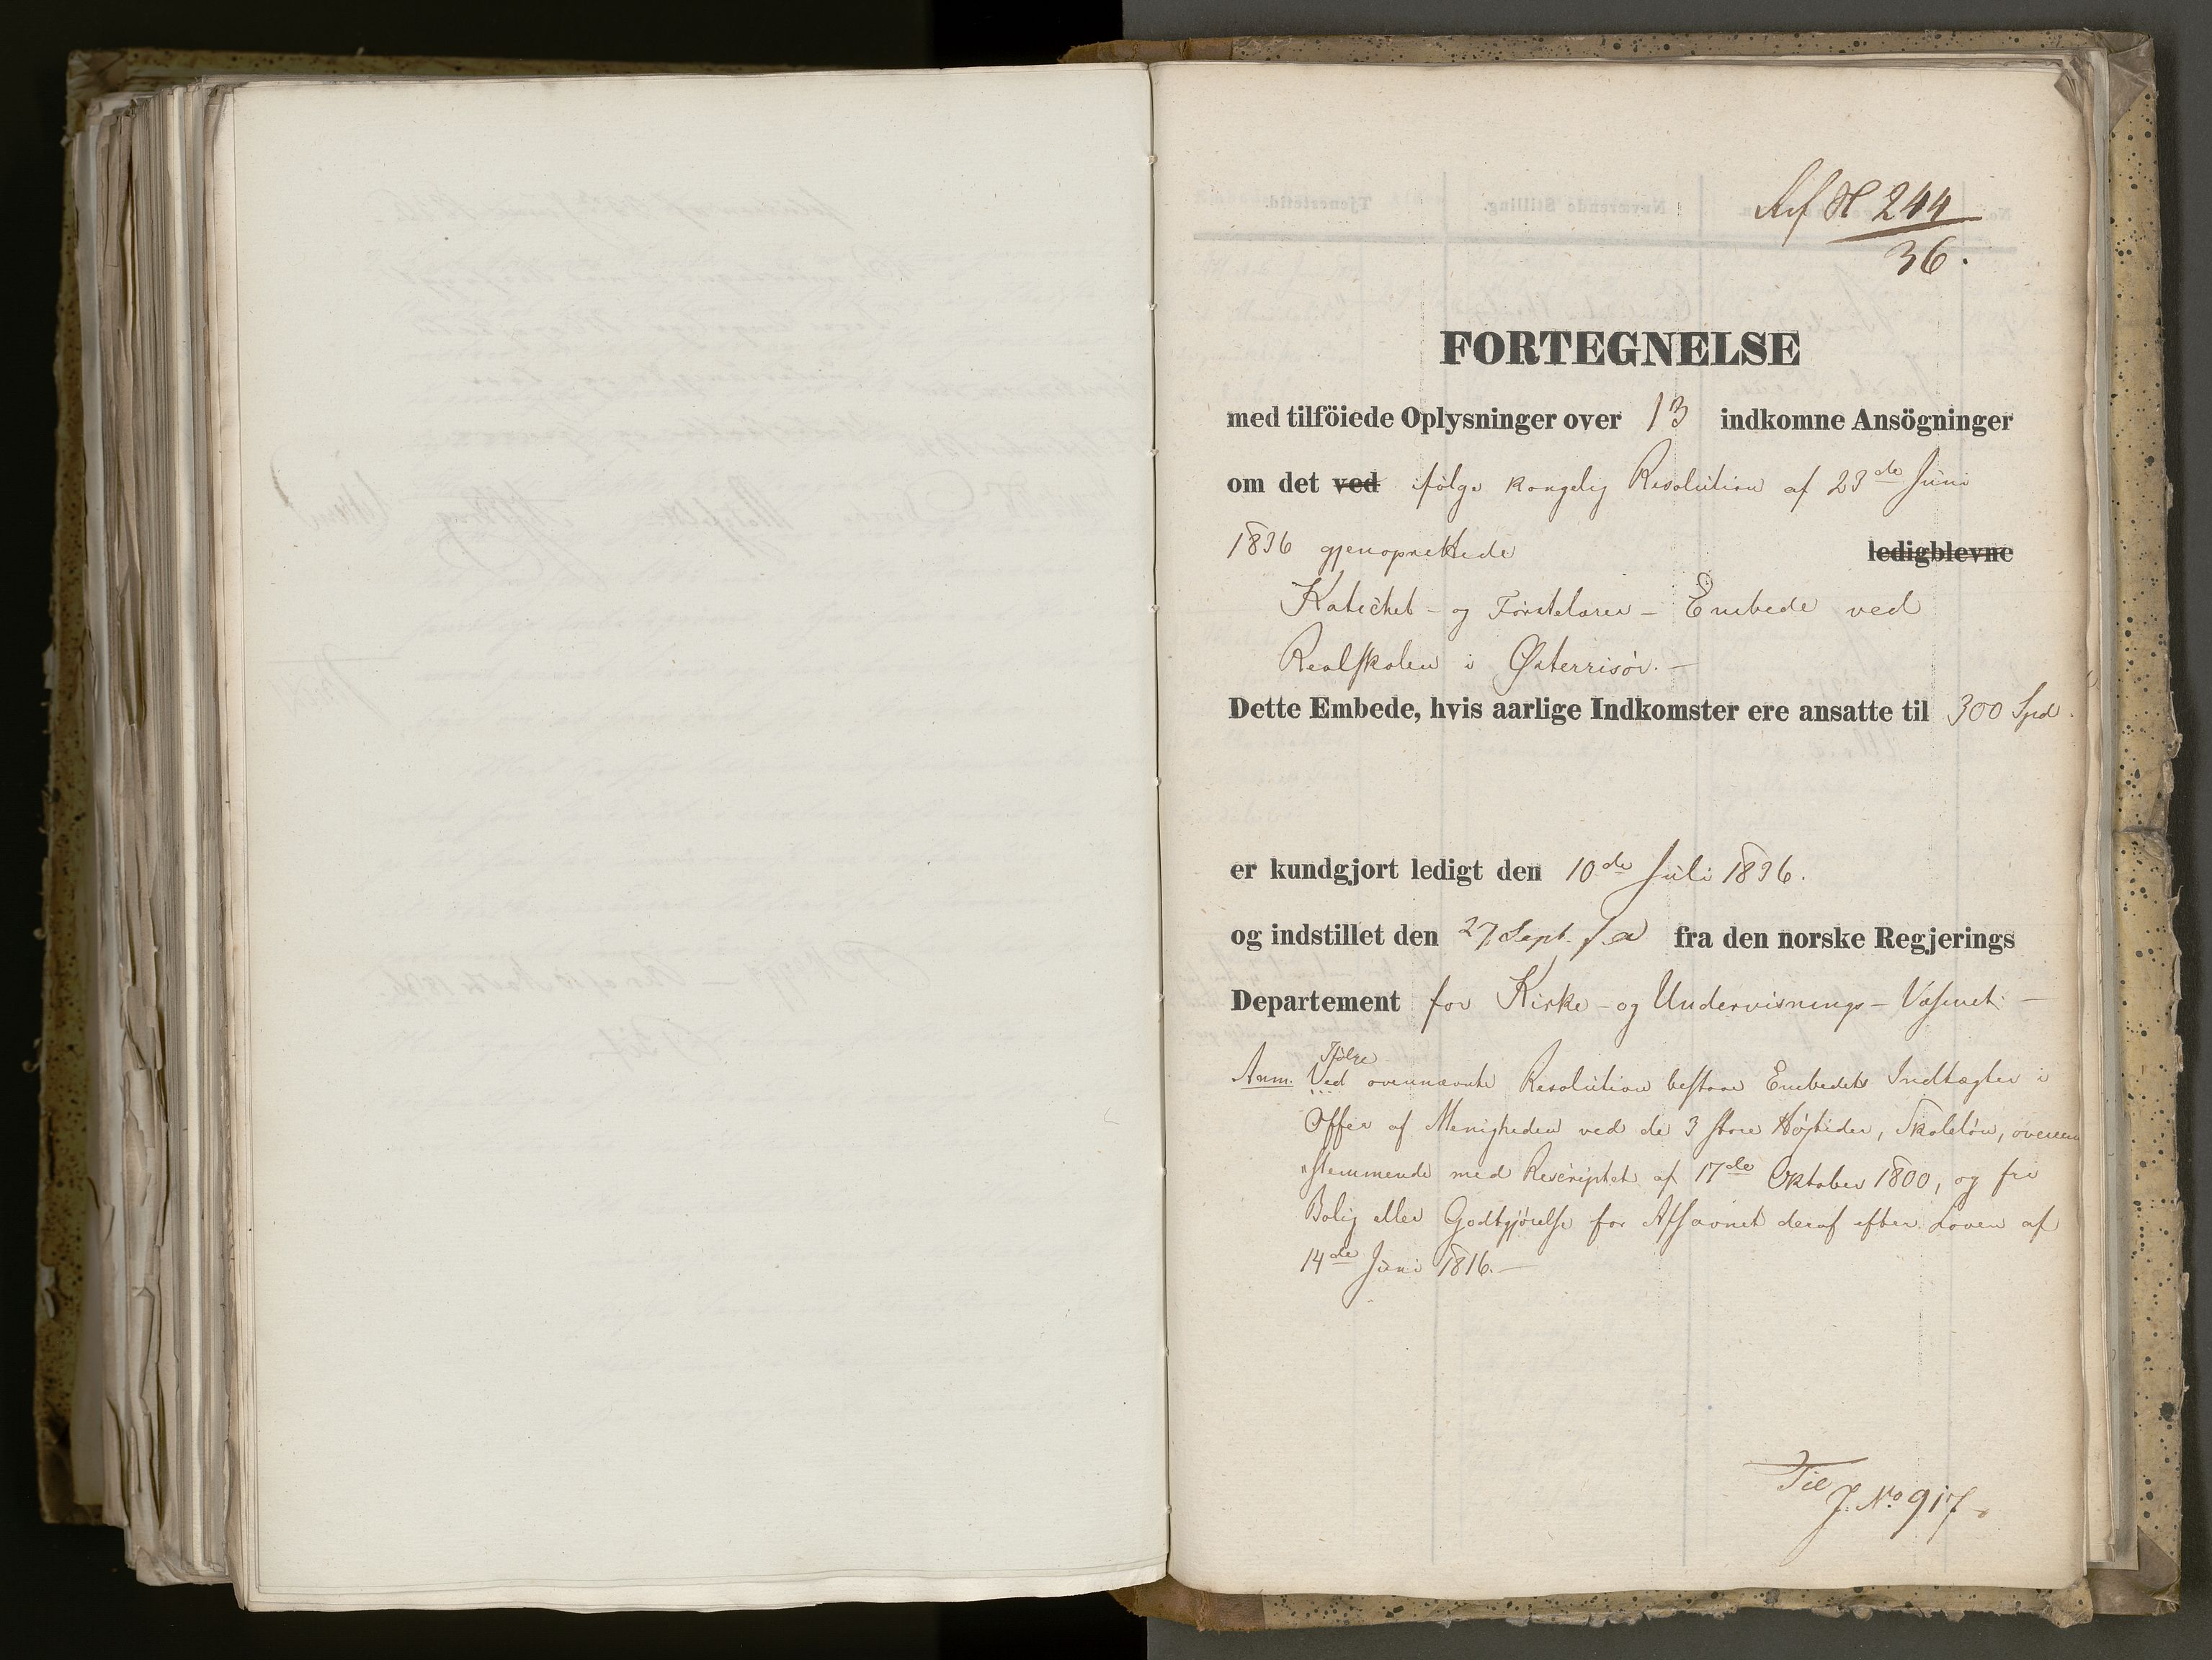 244
36.
FORTEGNELSE
med tilföiede Oplysninger over 13 indkomne Ansögninger
om det ved ifølge kongelig Resolution af 23de Juni
1836 gjenoprettede ledigblevne
Katechet- og Førstelærer- Embede ved
Realskolen i Østerrisør. -
Dette Embede, hvis aarlige Indkomster ere ansatte til 300 Spd.
er kundgjort ledigt den 10de Juli 1836.
og indstillet den 27 Sept. fra den norske Regjerings
Departement for Kirke- og Undervisnings-Væsenet. -
Ifølge
Anm. Ved ovennævnte Resolution bestaae Embedets Indtægter i
Offer af Menigheden ved de 3 store Højtider, Skoleløn, overeens
stemmende med Rescriptet af 17de Oktober 1800, og fri
Bolig eller Godtgjørelse for Afsavnet deraf efter Loven af
14de Juni 1816. -
Til
J. No 917.